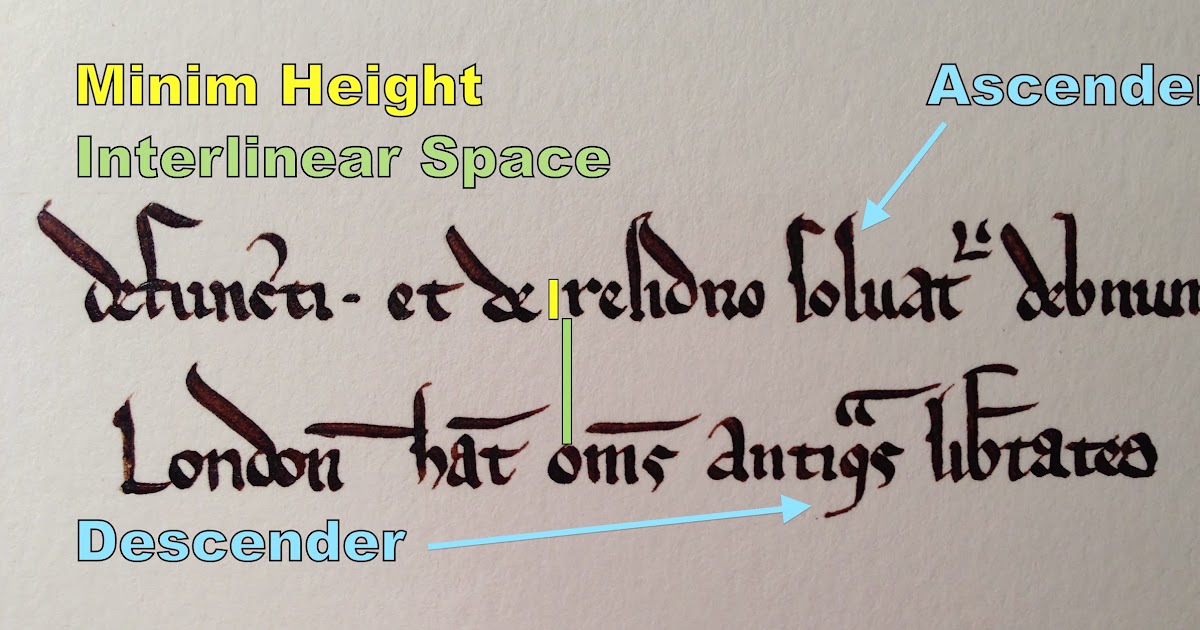 Minim Height
Ascender
Interlinear Space
defuncti · et de residuo soluat debitum
London hat oms antiqs libtates
Descender